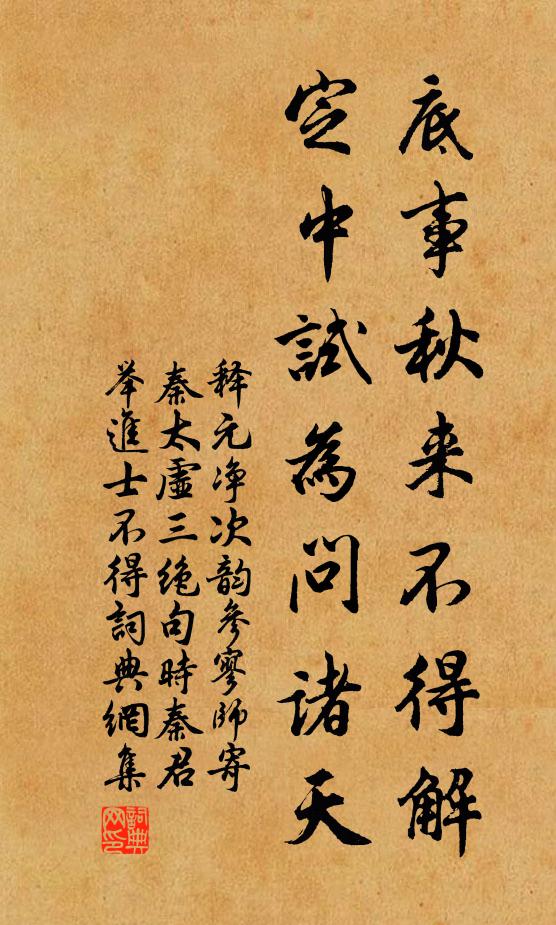 底事秋来不得解
定中試為問諸天
释元净次韵参寥師寄
秦太虛三絶句時秦君
举進士不得詞典網集
詞典网印